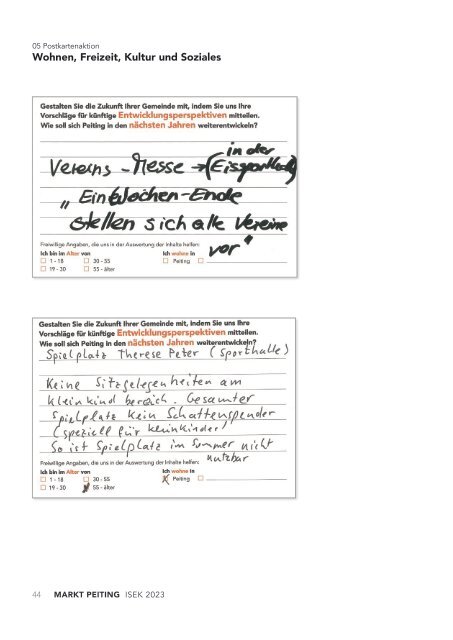 05 Postkartenaktion
Wohnen, Freizeit, Kultur und Soziales
Gestalten Sie die Zukunft Ihrer Gemeinde mit, indem Sie uns Ihre
Vorschläge für künftige Entwicklungsperspektiven mitteilen.
Wie soll sich Peiting in den nächsten Jahren weiterentwickeln?
in der
Vereins-Messe → (Eissporthalle)
„Ein Wochen-Ende
stellen sich alle Vereine
vor"
Freiwillige Angaben, die uns in der Auswertung der Inhalte helfen:
Ich bin im Alter von Ich wohne in
1 - 18 30 - 55 Peiting
19 - 30 55 - älter
Gestalten Sie die Zukunft Ihrer Gemeinde mit, indem Sie uns Ihre
Vorschläge für künftige Entwicklungsperspektiven mitteilen.
Wie soll sich Peiting in den nächsten Jahren weiterentwickeln?
Spielplatz Therese Peter (Sporthalle)
Keine Sitzgelegenheiten am
Kleinkind bereich. Gesamter
Spielplatz kein Schattenspender
(speziell für Kleinkinder)
So ist Spielplatz im Sommer nicht
nutzbar
Freiwillige Angaben, die uns in der Auswertung der Inhalte helfen:
Ich bin im Alter von Ich wohne in
1 - 18 30 - 55 Peiting
19 - 30 55 - älter
44 MARKT PEITING ISEK 2023